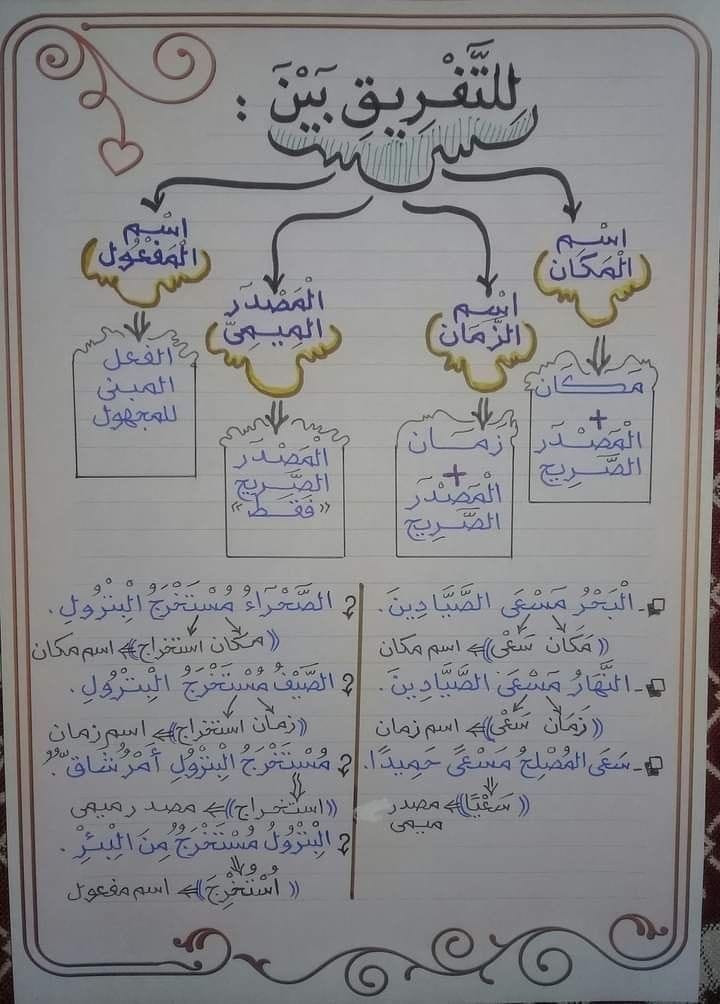 للتَّفْرِيقِ بَيْنَ :
اسْم
الْمَكَان
مَكَان
+
الْمَصْدَر
الصَّرِيح
اسْم
الزَّمَان
زَمَان
+
الْمَصْدَر
الصَّرِيح
الْمَصْدَر
الْمِيمِيّ
الْمَصْدَر
الصَّرِيح
«فَقَط»
اسْم
الْمَفْعُول
الفعل
المبنى
للمجهول
الْبَحْرُ مَسْعَى الصَّيَّادِينَ.
((مَكَان سَعْى)) ⇐ اسم مكان
النَّهَارُ مَسْعَى الصَّيَّادِينَ.
((زَمَان سَعْى)) ⇐ اسم زمان
سَعَى المُصْلِحُ مَسْعًى حَمِيدًا.
((سَعْيًا)) ⇐ مصدر
ميمى
الصَّحْرَاءُ مُسْتَخْرَجُ الْبِتْرُولِ.
((مكان استخراج)) ⇐ اسم مكان
الصَّيْفُ مُسْتَخْرَجُ الْبِتْرُولِ.
((زمان استخراج)) ⇐ اسم زمان
مُسْتَخْرَجُ الْبِتْرُولِ أَمْرٌ شَاقٌّ.
((استخراج)) ⇐ مصدر ميمى
الْبِتْرُولُ مُسْتَخْرَجٌ مِنَ الْبِئْرِ.
((اُسْتُخْرِجَ)) ⇐ اسم مفعول